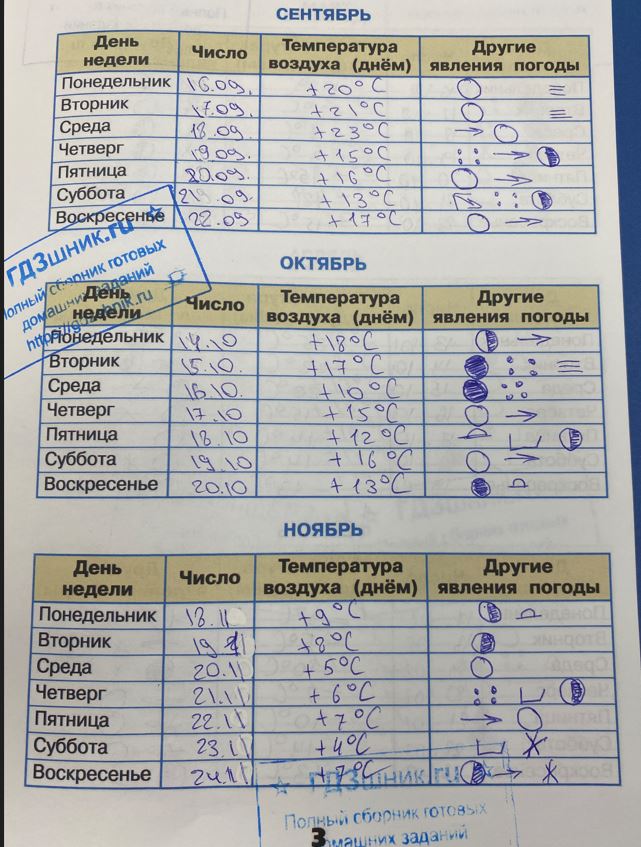 СЕНТЯБРЬ
День недели Число Температура воздуха (днём) Другие явления погоды
Понедельник 16.09. +20°C
Вторник 17.09. +21°C
Среда 18.09. +23°C
Четверг 19.09. +15°C
Пятница 20.09. +16°C
Суббота 21.09. +13°C
Воскресенье 22.09 +17°C
ГДЗшник.ru
Полный сборник готовых
домашних заданий
ОКТЯБРЬ
День недели Число Температура воздуха (днём) Другие явления погоды
Понедельник 14.10 +18°C
Вторник 15.10. +17°C
Среда 16.10. +10°C
Четверг 17.10 +15°C
Пятница 18.10 +12°C
Суббота 19.10 +16°C
Воскресенье 20.10 +13°C
НОЯБРЬ
День недели Число Температура воздуха (днём) Другие явления погоды
Понедельник 18.11 +9°C
Вторник 19.11 +8°C
Среда 20.11 +5°C
Четверг 21.11 +6°C
Пятница 22.11 +7°C
Суббота 23.11 +4°C
Воскресенье 24.11 +7°C
ГДЗшник.ru
Полный сборник готовых
домашних заданий
3